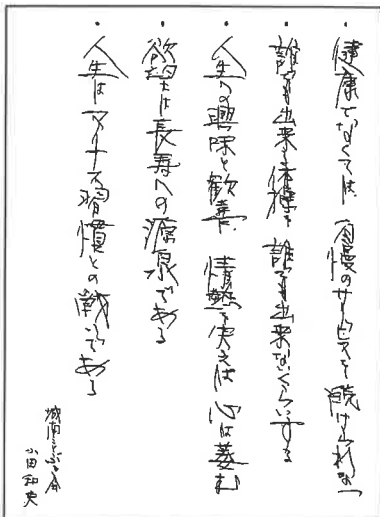 ・健康でなくては、自慢のサービスも続けられない
・誰でも出来る体操を 誰でも出来ないくらいする
・人生への興味と歓喜、情熱を失えば 心は萎む
・欲望は長寿への源泉である
・人生はマイナス習慣との戦いである
小田和夫